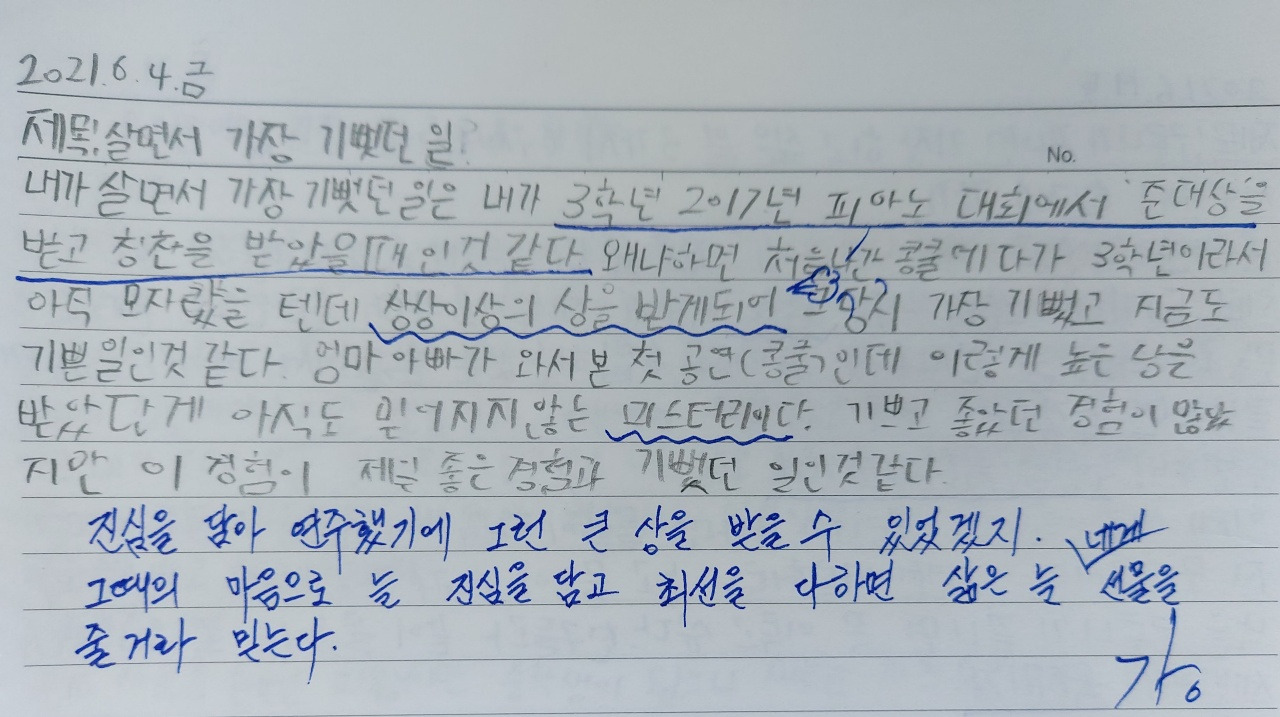 2021.6.4.금
제목: 살면서 가장 기뻤던 일?
No.
내가 살면서 가장 기뻤던일은 내가 3학년 2017년 피아노 대회에서 '준대상'을
받고 칭찬을 받았을때인것 같다. 왜냐하면 처음나간 콩쿨에다가 3학년이라서
아직 모자랐을 텐데 상상이상의 상을 받게되어 가장 기뻤고 지금도
기쁜일인것 같다. 엄마아빠가 와서본 첫 공연(콩쿨)인데 이렇게 높은 상을
받았단게 아직도 믿어지지않는 미스터리이다. 기쁘고 좋았던 경험이 많았
지만 이 경험이 제일 좋은경험과 기뻤던 일인것같다.
진심을 담아 연주했기에 그런 큰 상을 받을 수 있었겠지.
그때의 마음으로 늘 진심을 담고 최선을 다하면 삶은 늘 네게 선물을
줄거라 믿는다.